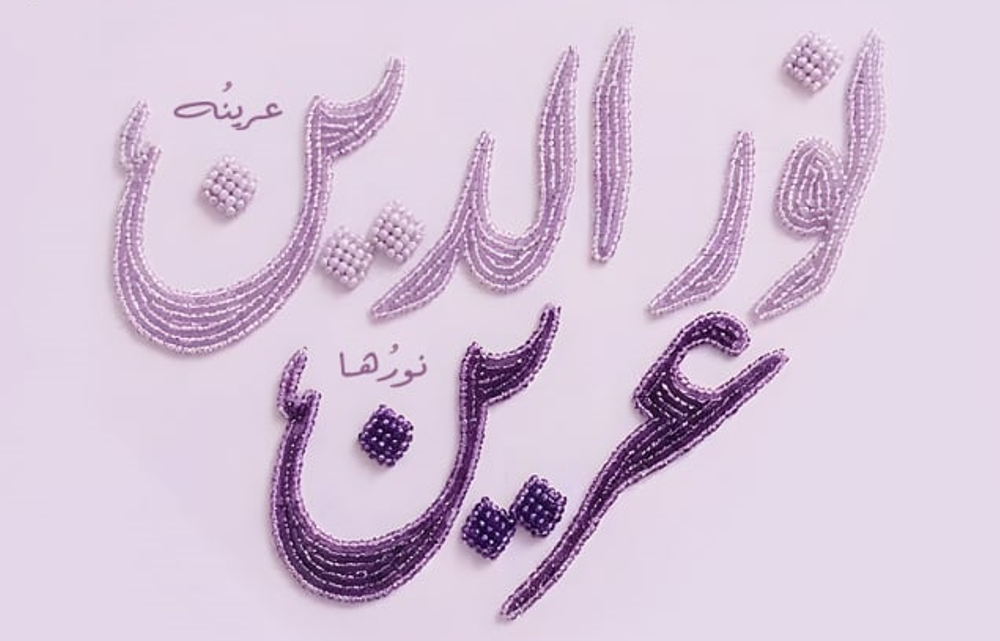 نور الدين
عرينُه
عرين
نورُها